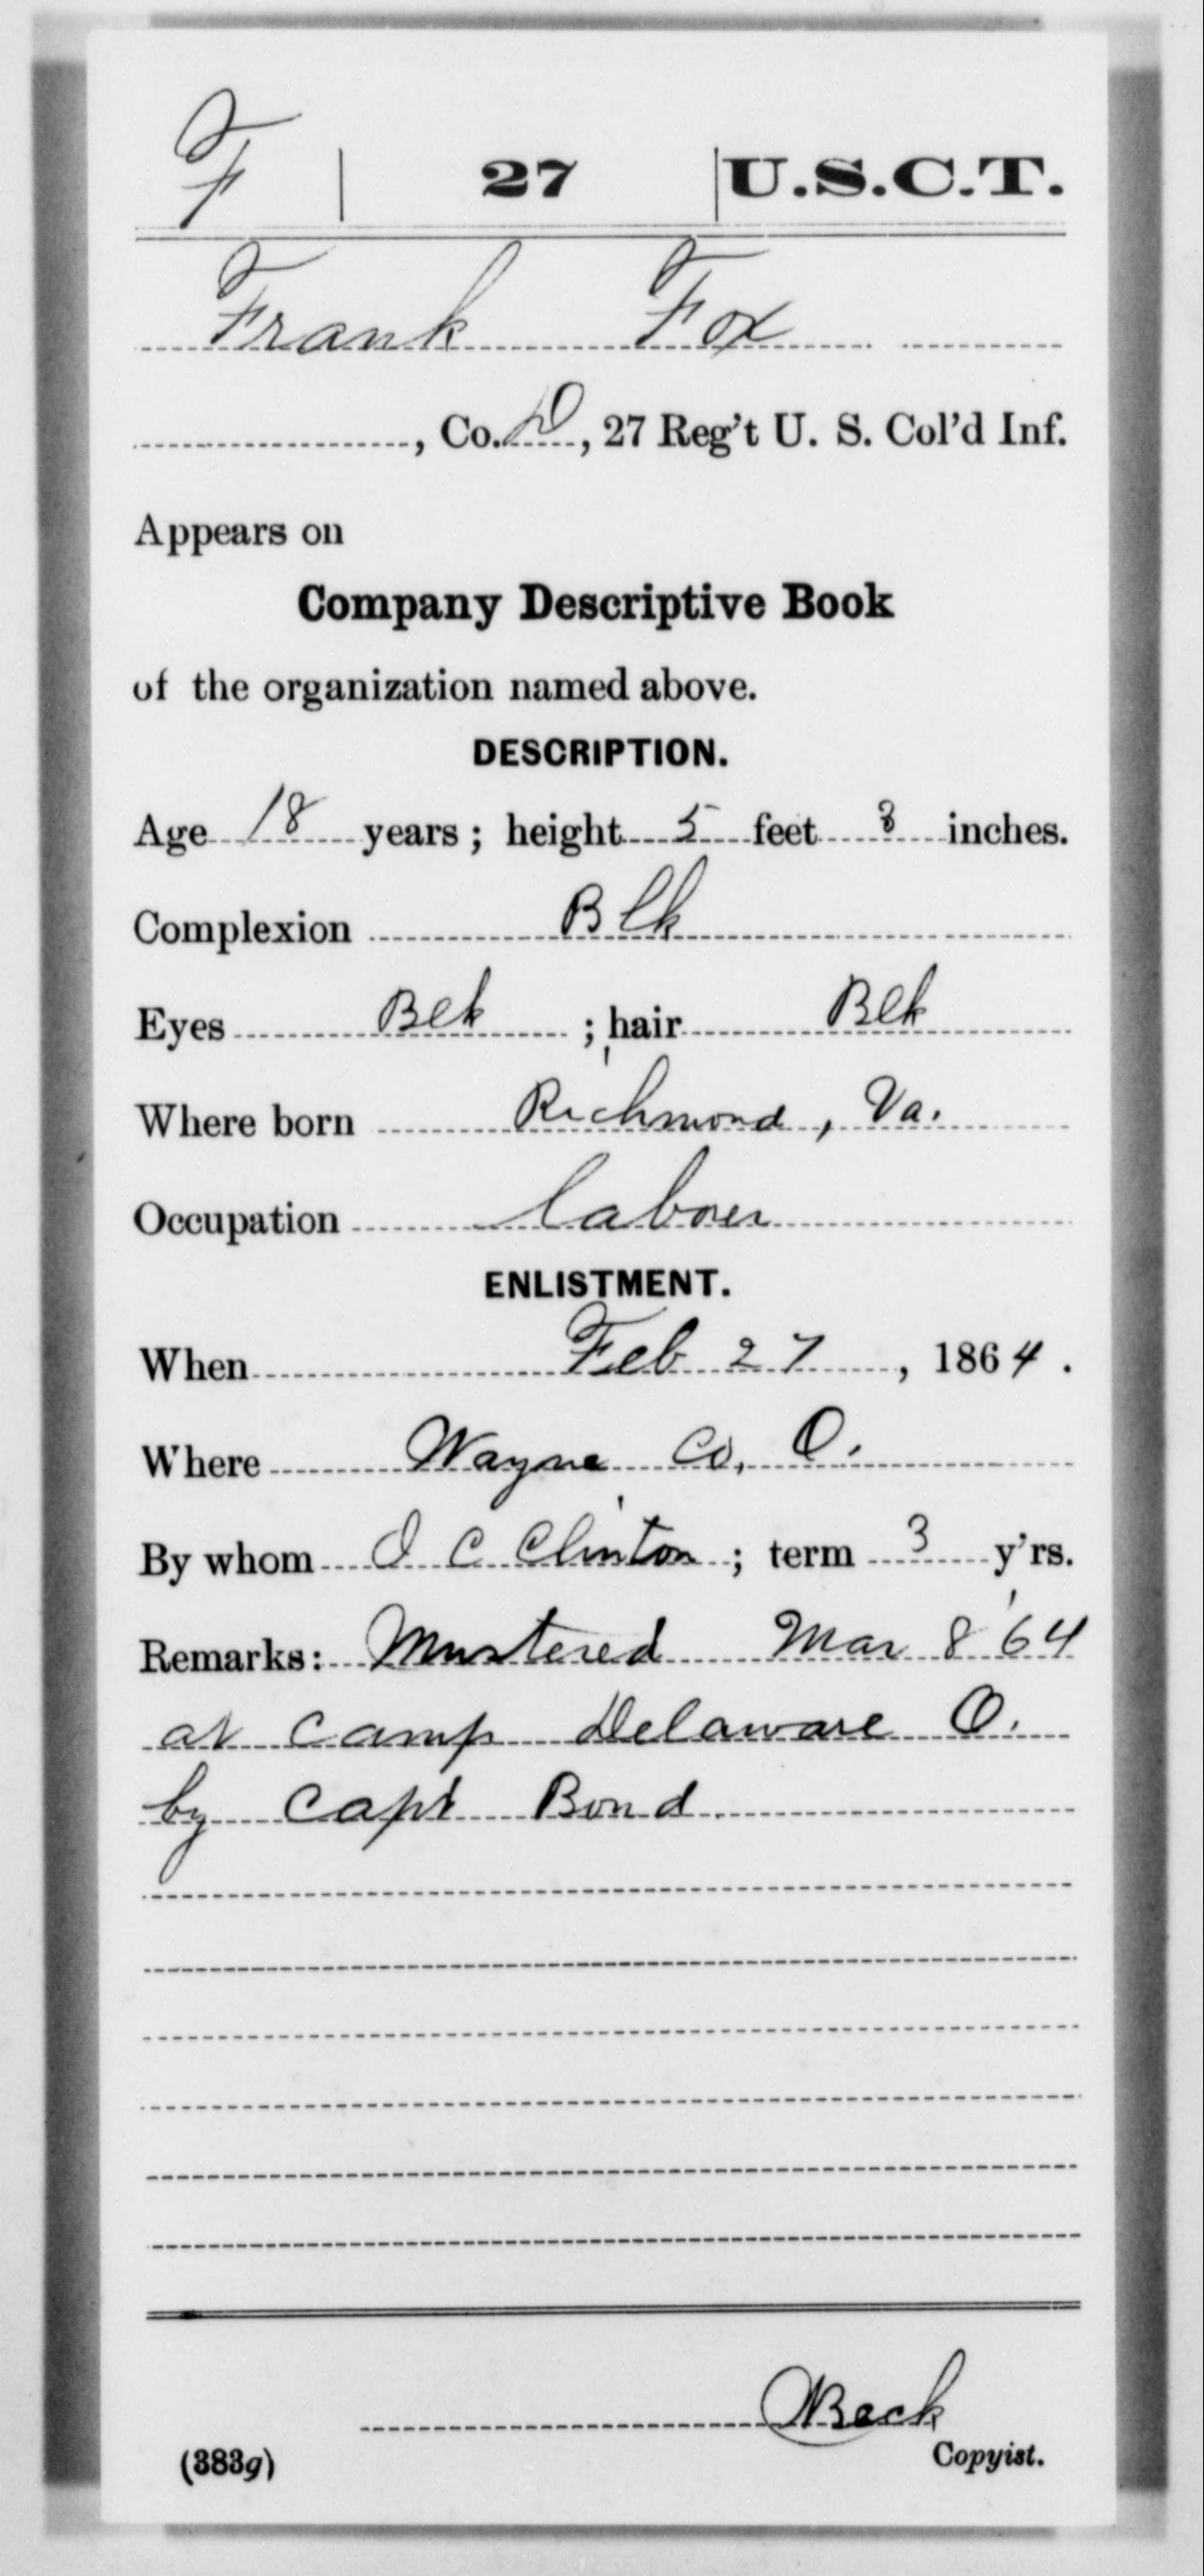 F | 27 | U.S.C.T.
Frank Fox
, Co. D, 27 Reg't U. S. Col'd Inf.
Appears on
Company Descriptive Book
of the organization named above.
DESCRIPTION.
Age 18 years; height 5 feet inches.
Complexion Blk
Eyes Blk; hair Blk
Where born Richmond, Va.
Occupation Laborer
ENLISTMENT.
When Feb 27, 1864.
Where Wayne Co, O.
By whom C Clinton; term 3 y'rs.
Remarks: Mustered Mar 8 '64
at Camp Delaware O.
by Capt Bond
Beck
(383g) Copyist.